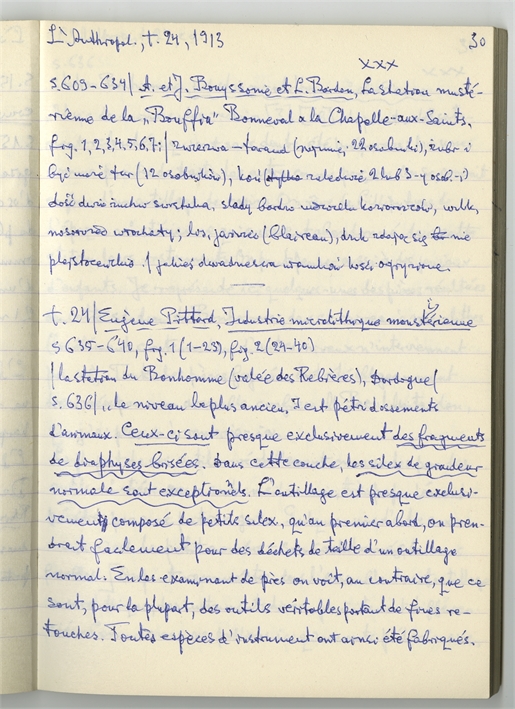 L'Anthropol., t. 24, 1913
30
xxx
s. 609-634/ A. et J. Bouyssonie et L. Bardon, La station mousté-
rienne de la „Bouffia" Bonneval a la Chapelle-aux-Saints.
fig. 1, 2, 3, 4, 5, 6, 7; / zwierzęta - tarand (najmniej 22 osobniki), żubr i
być może tur (12 osobników), koń ( zaledwie 2 lub 3-y osob.-i)
dość dużo świstaka, ślady bardzo koziorożców, wilk,
nosorożec włochaty; lis, jaźwiec (blaireau), dzik zdają się nie
plejstoceńskie. / jakieś kości ogryzione.
t. 24/ Eugène Pittard, Industrie microlithique moustérienne
s 635-640, fig. 1 (1-23), fig. 2 (24-40)
/ la station du Bonhomme (valée des Rebières), Dordogne/
s. 636/ „Le niveau le plus ancien, I est pétri d'ossements
d'animaux. Ceux-ci sont presque exclusivement des fragments
de diaphyses brisées. Dans cette couche, les silex de grandeur
normale sont exceptionels. L'outillage est presque exclusi-
vement composé de petits silex, qu'au premier abord, on pren-
drait facilement pour des déchets de taille d'un outillage
normal. En les examinant de près on voit, au contraire, que ce
sont, pour la plupart, des outils véritables portant de fines re-
touches. Toutes espèces d'instrument ont ainsi été fabriqués.